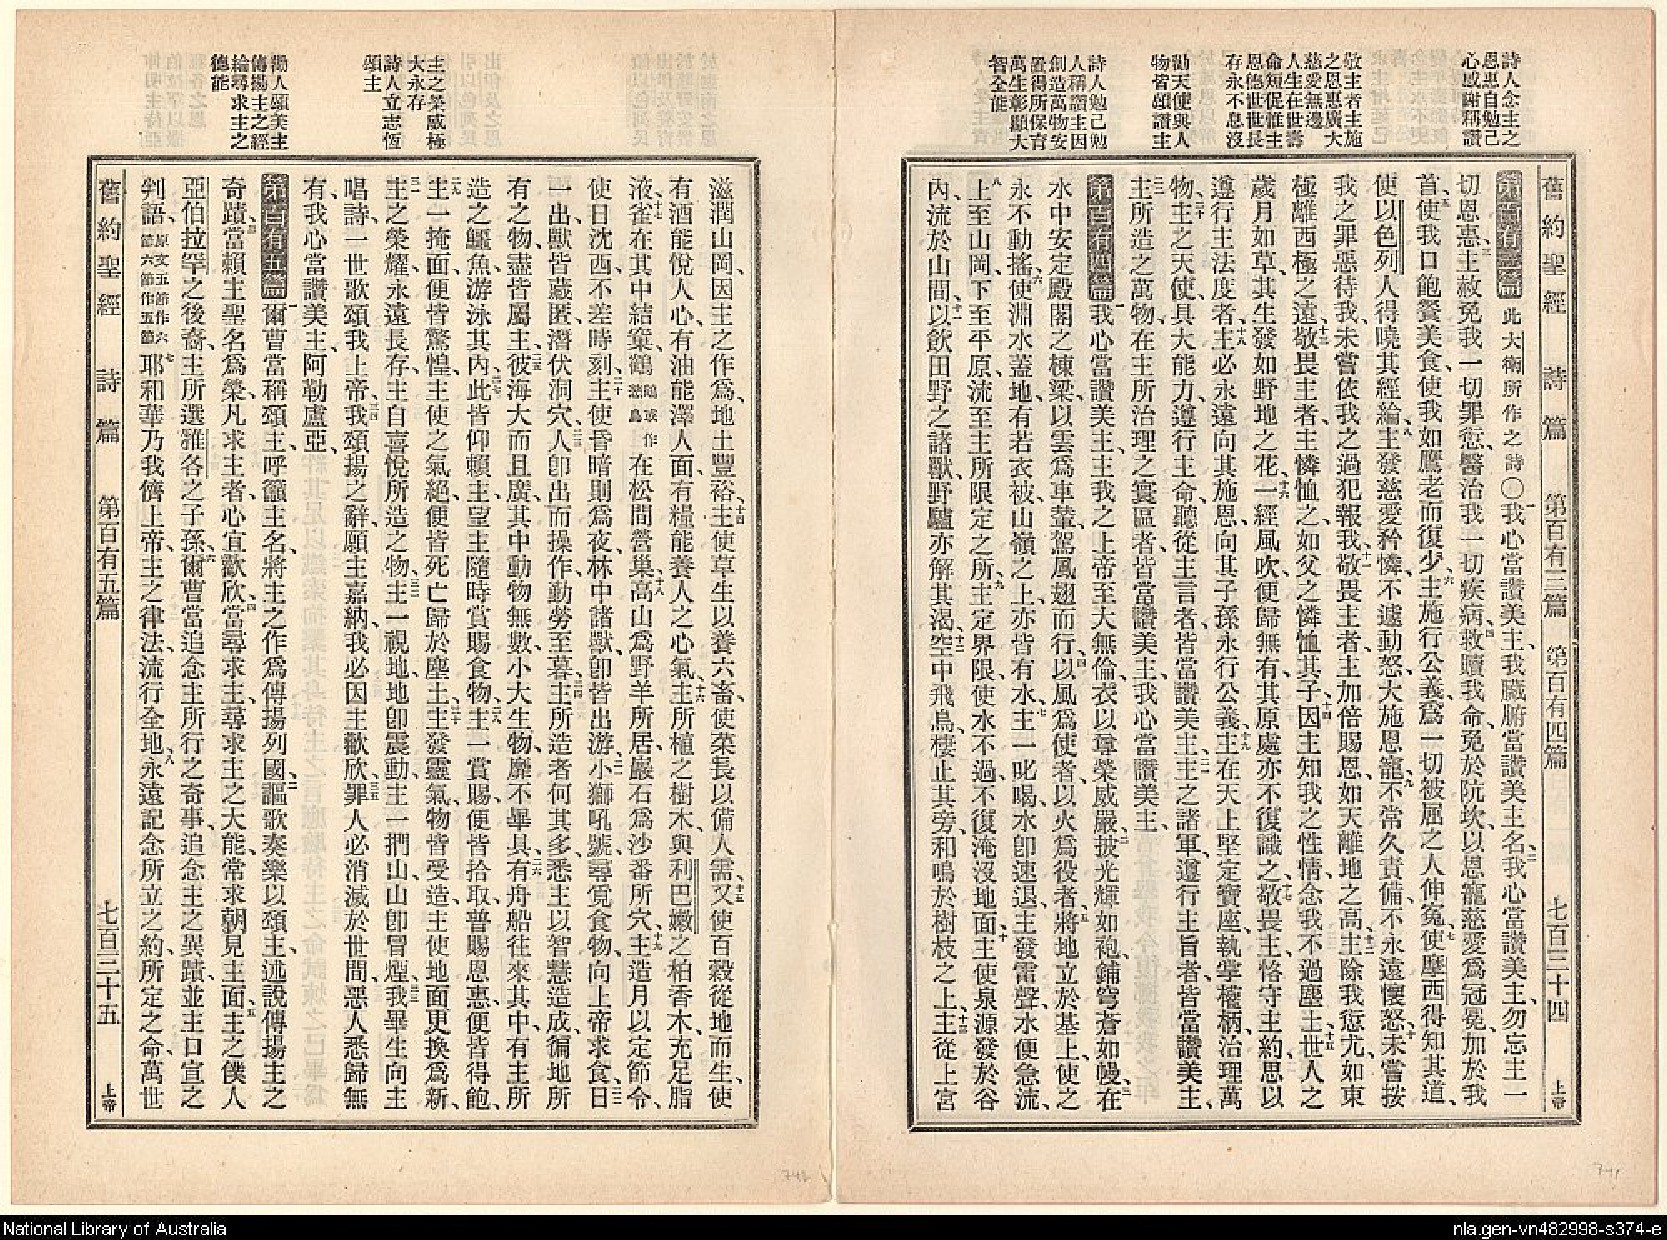 詩人念主之
恩惠自勉己
心感謝稱讚
敬主者主施
之恩惠廣大
慈愛無邊
人生在世壽
命短促惟主
恩德世世長
存永不息沒
勸天使與人
物皆頌讚主
詩人勉己勉
人稱讚主因
創造萬物安
置得所保育
萬生彰顯大
智全能
舊約聖經 詩篇 第百有三篇 第百有四篇 七百三十四 上帝
第百有三篇 此大衛所作之詩○一我心當讚美主、我臟腑當讚美主名、二我心當讚美主、勿忘主一
切恩惠、三主赦免我一切罪愆、醫治我一切疾病、四救贖我命、免於阬坎、以恩寵慈愛爲冠冕、加於我
首、五使我口飽餐美食、使我如鷹老而復少、六主施行公義、爲一切被屈之人伸冤、七使摩西得知其道、
使以色列人得曉其經綸、八主發慈愛矜憐、不遽動怒、大施恩寵、九不常久責備、不永遠懷怒、十未嘗按
我之罪惡待我、未嘗依我之過犯報我、十一敬畏主者、主加倍賜恩、如天離地之高、十二主除我愆尤、如東
極離西極之遠、十三敬畏主者、主憐恤之、如父之憐恤其子、十四因主知我之性情、念我不過塵土、十五世人之
歲月如草、其生發如野地之花、十六一經風吹、便歸無有、其原處亦不復識之、十七敬畏主、恪守主約、思以
遵行主法度者、十八主必永遠向其施恩、向其子孫、永行公義、十九主在天上堅定寶座、執掌權柄、治理萬
物、二十主之天使、具大能力、遵行主命、聽從主言者、皆當讚美主、二一主之諸軍、遵行主旨者、皆當讚美主、
二二主所造之萬物、在主所治理之寰區者、皆當讚美主、我心當讚美主、
第百有四篇 一我心當讚美主、主我之上帝、至大無倫、衣以尊榮威嚴、二披光輝如袍、鋪穹蒼如幔、三在
水中安定殿閣之棟梁、以雲爲車輦、駕風翅而行、四以風爲使者、以火爲役者、五將地立於基上、使之
永不動搖、六使淵水蓋地、有若衣被、山嶺之上、亦皆有水、七主一叱喝、水卽速退、主發雷聲、水便急流、
八上至山岡、下至平原、流至主所限定之所、九主定界限、使水不過、不復淹沒地面、十主使泉源發於谷
內、流於山間、十一以飲田野之諸獸、野驢亦解其渴、十二空中飛鳥、棲止其旁、和鳴於樹枝之上、十三主從上宮
主之榮威極
大永存
詩人立志恆
頌主
勸人頌美主
傳揚主之經
綸尋求主之
德能
滋潤山岡、因主之作爲、地土豐裕、十四主使草生以養六畜、使菜長以備人需、十五又使百穀從地而生、使
有酒能悅人心、有油能澤人面、有糧能養人之心氣、十六主所植之樹木、與利巴嫩之柏香木、充足脂
液、十七雀在其中結窠、鶴在松間營巢、十八高山爲野羊所居、巖石爲沙番所穴、十九主造月以定節令、
使日沈西不差時刻、二十主使昏暗則爲夜、林中諸獸、卽皆出游、二一小獅吼號、尋覓食物、向上帝求食、二二日
一出、獸皆藏匿、潛伏洞穴、二三人卽出而操作、勤勞至暮、二四主所造者、何其多、悉主以智慧造成、徧地所
有之物、盡皆屬主、二五彼海大而且廣、其中動物無數、小大生物、靡不畢具、二六有舟船往來其中、有主所
造之鱷魚、游泳其內、二七此皆仰賴主、望主隨時賞賜食物、二八主一賞賜、便皆拾取、普賜恩惠、便皆得飽、
二九主一掩面、便皆驚惶、主使之氣絕、便皆死亡、歸於塵土、三十主發靈氣、物皆受造、主使地面更換爲新、
三一主之榮耀、永遠長存、主自喜悅所造之物、三二主一視地、地卽震動、主一捫山、山卽冒煙、三三我畢生向主
唱詩、一世歌頌我上帝、三四我頌揚之辭、願主嘉納、我必因主歡欣、三五罪人必消滅於世間、惡人悉歸無
有、我心當讚美主、阿勒盧亞、
第百有五篇 一爾曹當稱頌主、呼籲主名、將主之作爲、傳揚列國、二謳歌奏樂以頌主、述說傳揚主之
奇蹟、三當賴主聖名爲榮、凡求主者、心宜歡欣、四當尋求主、尋求主之大能、常求朝見主面、五主之僕人
亞伯拉罕之後裔、主所選雅各之子孫、六爾曹當追念主所行之奇事、追念主之異蹟、並主口宣之
判語、原文五節作六節六節作五節 七耶和華乃我儕上帝、主之律法、流行全地、八永遠記念所立之約、所定之命、萬世
舊約聖經 詩篇 第百有五篇 七百三十五 上帝
742
741
National Library of Australia
nla.gen-vn482998-s374-e